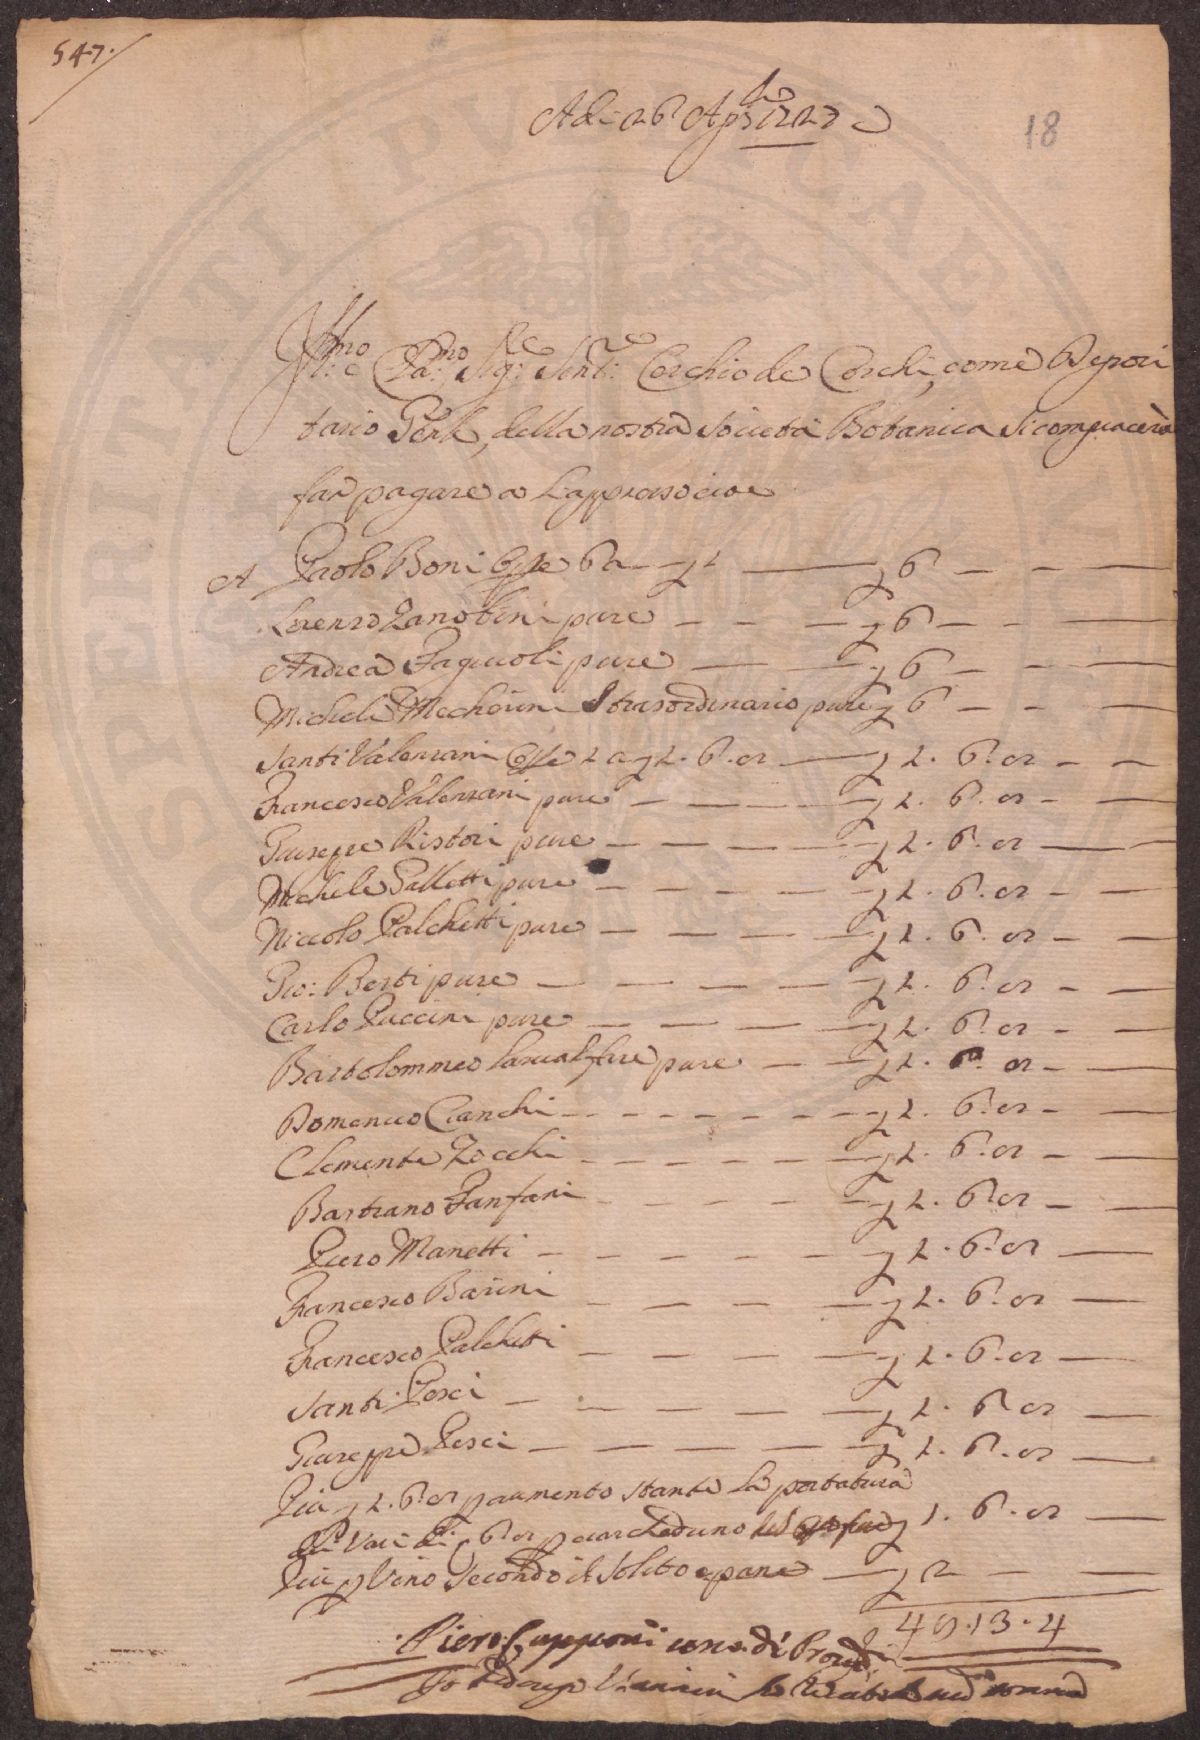 547.
18
Adi 26 Aple 1727
Illmo: e Cla:mo Sig:re Sen:re Cerchio de Cerchi, come Deposi
tario Genle, della nostra Società Botanica si compiacerà
far pagare a L'appresso cioe
A Paolo Boni 6 a 6 — —
Lorenzo Zanobini pure — — — 6 — —
Andrea Fagiuoli pure — — 6 — —
Michele Mechèrini Straordinario pure 6 — —
Santi Valenzani 2. 6. 8 — 2. 6. 8 — —
Francesco Valenzani pure — — — 2. 6. 8 — —
Giuseppe Ristori pure — — — 2. 6. 8 — —
Michele Galletti pure — — — 2. 6. 8 — —
Niccolo Palchetti pure — — — 2. 6. 8 — —
Gio: Berti pure — — — 2. 6. 8 — —
Carlo Puccini pure — — — 2. 6. 8 — —
Bartolommeo pure — — 2. 6. 8 — —
Domenico Cianchi — — — 2. 6. 8 — —
Clemente Zocchi — — — 2. 6. 8 — —
Bastiano Fanfani — — — 2. 6. 8 — —
Piero Manetti — — — 2. 6. 8 —
Francesco Barini — — — 2. 6. 8 —
Francesco Palchetti — — — 2. 6. 8 —
Santi Pesci — — — 2. 6. 8 —
Giuseppe Pesci — — — 2. 6. 8 —
Piu 2. 6. 8 p aumento stante La portatura
di Vasi di 6. 8 p ciascheduno 1. 6. 8 —
Piu p Vino secondo il solito e pane — 2 — —
49. 13. 4
Piero Capponi uno di Provdi
Io